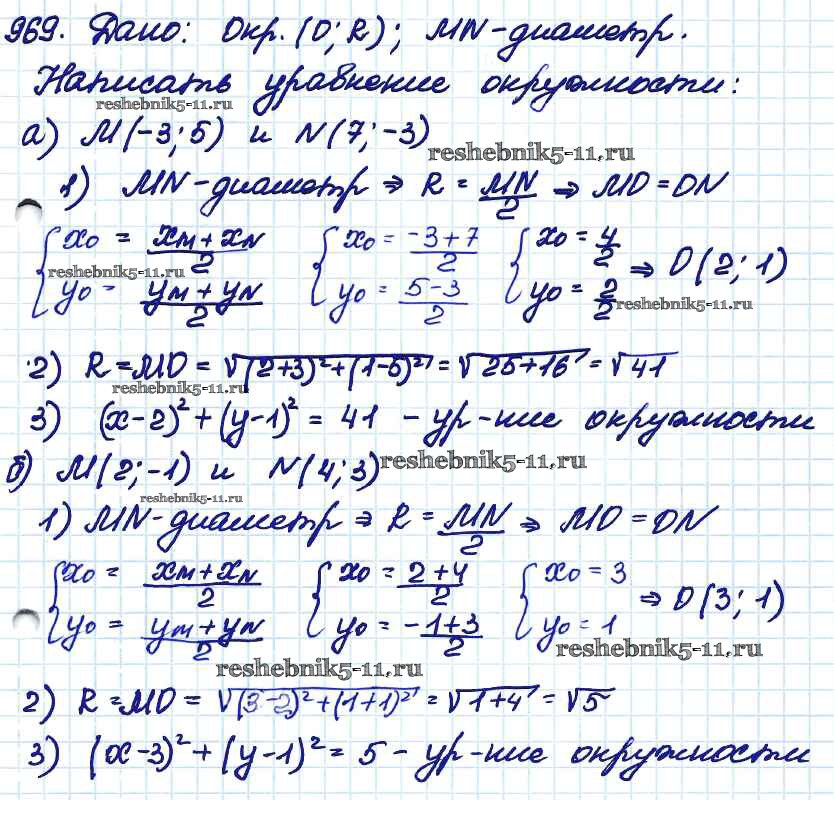 969. Дано: Окр. (O; R); MN-диаметр.
Написать уравнение окружности:
reshebnik5-11.ru
а) M(-3; 5) и N(7; -3)
reshebnik5-11.ru
1) MN-диаметр ⇒ R = MN/2 ⇒ MO = ON
{ x₀ = (xм + xN)/2 { x₀ = (-3+7)/2 { x₀ = 4/2
reshebnik5-11.ru ⇒ O(2; 1)
y₀ = (yм + yN)/2 y₀ = (5-3)/2 y₀ = 2/2
reshebnik5-11.ru
2) R = MO = √((2+3)² + (1-5)²) = √(25+16) = √41
reshebnik5-11.ru
3) (x-2)² + (y-1)² = 41 - ур-ние окружности
б) M(2; -1) и N(4; 3)
reshebnik5-11.ru
reshebnik5-11.ru
1) MN-диаметр ⇒ R = MN/2 ⇒ MO = ON
{ x₀ = (xм + xN)/2 { x₀ = (2+4)/2 { x₀ = 3
⇒ O(3; 1)
y₀ = (yм + yN)/2 y₀ = (-1+3)/2 y₀ = 1
reshebnik5-11.ru
reshebnik5-11.ru
2) R = MO = √((3-2)² + (1+1)²) = √(1+4) = √5
3) (x-3)² + (y-1)² = 5 - ур-ние окружности